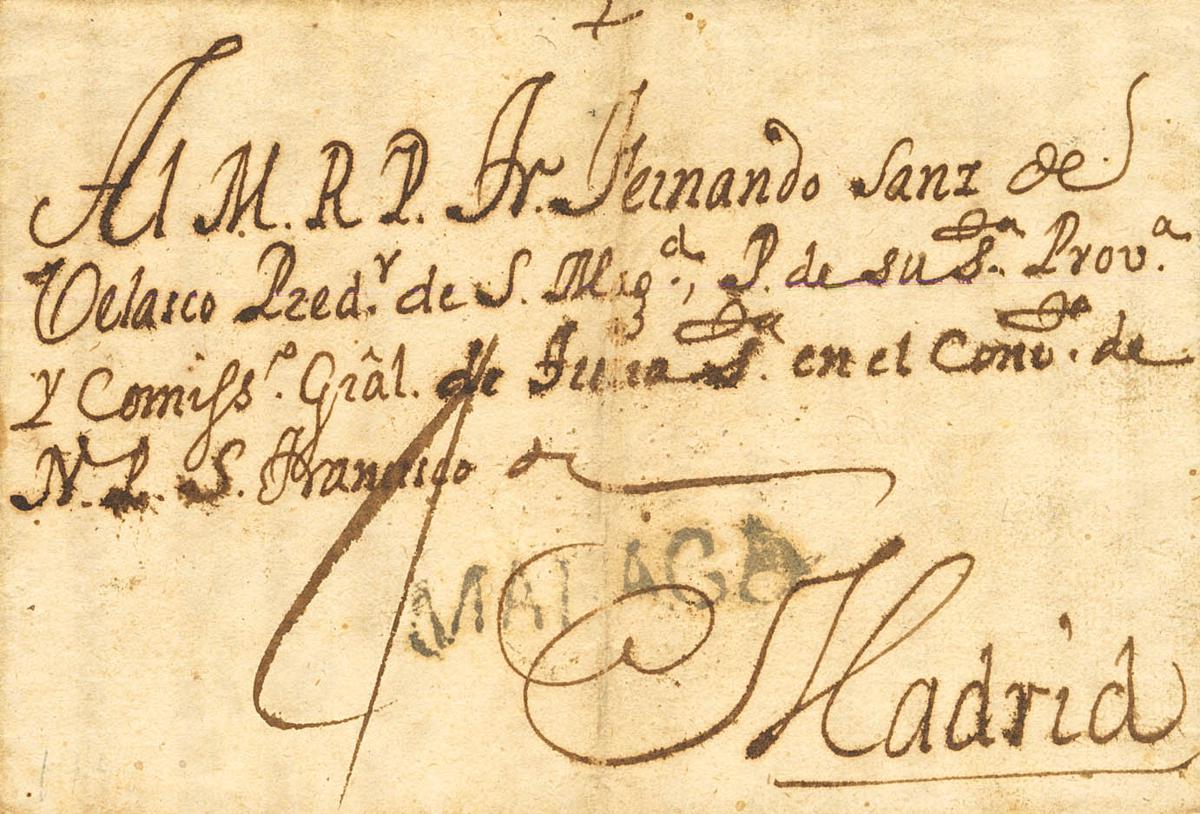 Al M. R P. Fr. Fernando Sanz de
Velasco Pred.r de S. Mag.d, P. de su S.ta Prov.a
Y Comiss.o Grâl. de S.ta en el Conv.to de
N. P. S. Francisco de
MALAGA
Madrid